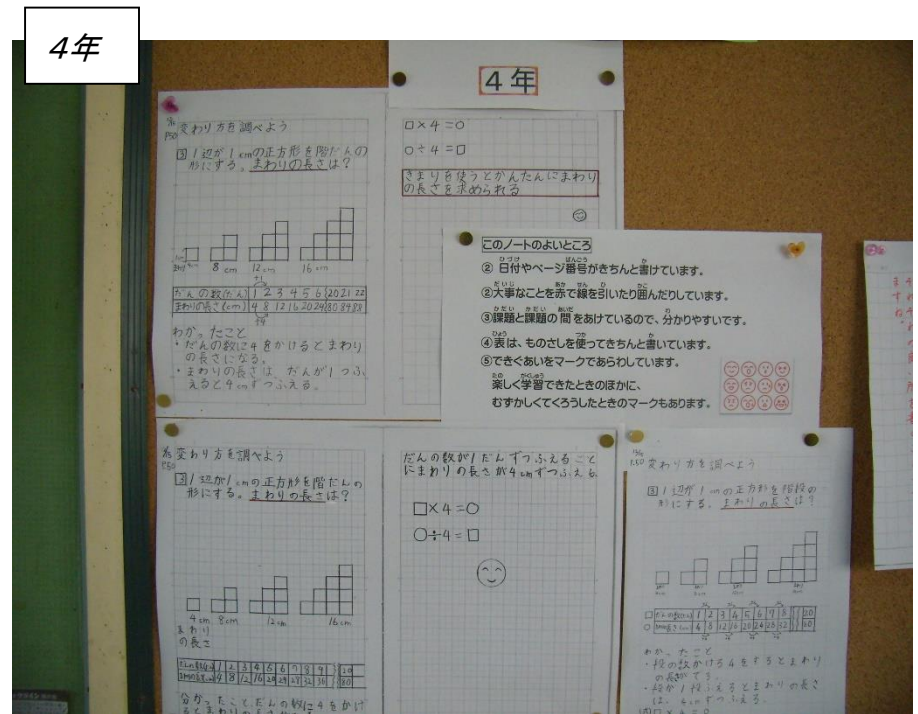 4年
4年
変わり方を調べよう
P50
3 1辺が1cmの正方形を階だんの
形にする。まわりの長さは?
8cm
12cm
16cm
+1
だんの数(だん) 1 2 3 4 5 6 20 21 22
まわりの長さ(cm) 4 8 12 16 20 24 80 84 88
+4
わかったこと
・だんの数に4をかけるとまわり
の長さになる。
・まわりの長さは、だんが1つふ
えると4cmずつふえる。
□×4=○
○÷4=□
きまりを使うとかんたんにまわり
の長さを求められる
このノートのよいところ
② 日付やページ番号がきちんと書けています。
②大事なことを赤で線を引いたり囲んだりしています。
③課題と課題の間をあけているので、分かりやすいです。
④表は、ものさしを使ってきちんと書いています。
⑤できぐあいをマークであらわしています。
楽しく学習できたときのほかに、
むずかしくてくろうしたときのマークもあります。
変わり方を調べよう
P50
3 1辺が1cmの正方形を階だんの
形にする。まわりの長さは?
4cm 8cm 12cm 16cm
まわり
の長さ
1 2 3 4 5 6 7 8 9 20
4 8 12 16 20 24 28 32 36 80
分かったこと、だんの数に4をかけ
だんの数が1だんずつふえること
にまわりの長さが4cmずつふえる
□×4=○
○÷4=□
変わり方を調べよう
P.50
3 1辺が1cmの正方形を階段の
形にする。まわりの長さは?
1 2 3 4 5 6 7 8 20
4 8 12 16 20 24 28 32 80
わかったこと
・段の数かける4をするとまわり
の長さがでる。
・段が1段ふえるとまわりの長さ
は、4cmずつふえる。